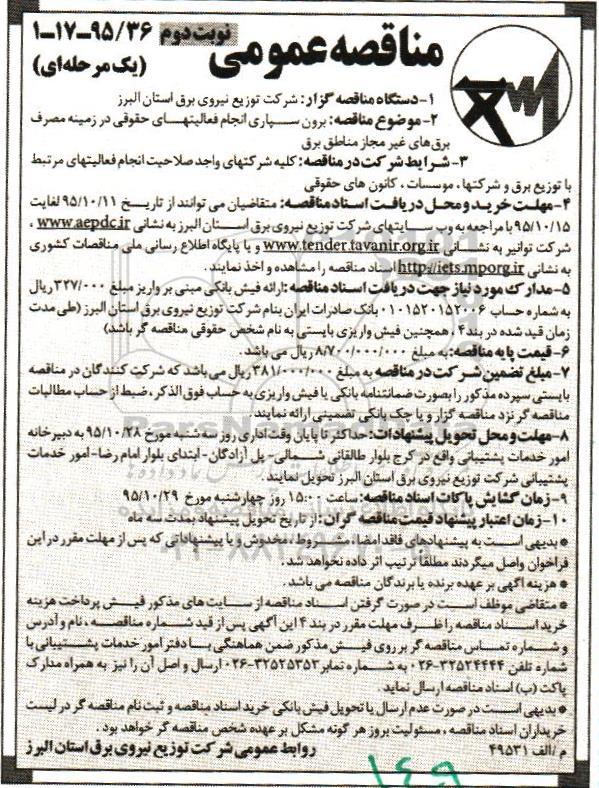 مناقصه عمومی نوبت دوم ۱-۱۷-۹۵/۳۶
(یک مرحله‌ای)
۱- دستگاه مناقصه گزار: شرکت توزیع نیروی برق استان البرز
۲- موضوع مناقصه: برون سپاری انجام فعالیتهای حقوقی در زمینه مصرف
برق‌های غیر مجاز مناطق برق
۳- شرایط شرکت در مناقصه: کلیه شرکتهای واجد صلاحیت انجام فعالیتهای مرتبط
با توزیع برق و شرکتها، موسسات، کانون های حقوقی
۴- مهلت خرید و محل دریافت اسناد مناقصه: متقاضیان می توانند از تاریخ ۹۵/۱۰/۱۱ لغایت
۹۵/۱۰/۱۵ با مراجعه به وب سایتهای شرکت توزیع نیروی برق استان البرز به نشانی www.aepdc.ir ،
شرکت توانیر به نشانی www.tender.tavanir.org.ir و یا پایگاه اطلاع رسانی ملی مناقصات کشوری
به نشانی http://iets.mporg.ir اسناد مناقصه را مشاهده و اخذ نمایند.
۵- مدارک مورد نیاز جهت دریافت اسناد مناقصه: ارائه فیش بانکی مبنی بر واریز مبلغ ۳۲۷/۰۰۰ ریال
به شماره حساب ۰۱۰۱۵۲۰۱۵۲۰۰۶ بانک صادرات ایران بنام شرکت توزیع نیروی برق استان البرز (طی مدت
زمان قید شده در بند ۴، همچنین فیش واریزی بایستی به نام شخص حقوقی مناقصه گر باشد)
۶- قیمت پایه مناقصه: به مبلغ ۸/۷۰۰/۰۰۰/۰۰۰ ریال می باشد.
۷- مبلغ تضمین شرکت در مناقصه به مبلغ ۳۸۱/۰۰۰/۰۰۰ ریال می باشد که شرکت کنندگان در مناقصه
بایستی سپرده مذکور را بصورت ضمانتنامه بانکی یا فیش واریزی به حساب فوق الذکر، ضبط از حساب مطالبات
مناقصه گر نزد مناقصه گزار و یا چک بانکی تضمینی ارائه نمایند.
۸- مهلت و محل تحویل پیشنهادات: حداکثر تا پایان وقت اداری روز سه شنبه مورخ ۹۵/۱۰/۲۸ به دبیرخانه
امور خدمات پشتیبانی واقع در کرج بلوار طالقانی شمالی- پل آزادگان - ابتدای بلوار امام رضا- امور خدمات
پشتیبانی شرکت توزیع نیروی برق استان البرز تحویل نمایند.
۹- زمان گشایش پاکات اسناد مناقصه: ساعت ۱۵:۰۰ روز چهارشنبه مورخ ۹۵/۱۰/۲۹
۱۰- زمان اعتبار پیشنهاد قیمت مناقصه گران: از تاریخ تحویل پیشنهاد بمدت سه ماه
* بدیهی است به پیشنهادهای فاقد امضا، مشروط، مخدوش و یا پیشنهاداتی که پس از مهلت مقرر در این
فراخوان واصل میگردند مطلقاً ترتیب اثر داده نخواهد شد.
* هزینه آگهی بر عهده برنده یا برندگان مناقصه می باشد.
* متقاضی موظف است در صورت گرفتن اسناد مناقصه از سایت های مذکور فیش پرداخت هزینه
خرید اسناد مناقصه را ظرف مهلت مقرر در بند ۴ این آگهی پس از قید شماره مناقصه، نام و آدرس
و شماره تماس مناقصه گر بر روی فیش مذکور ضمن هماهنگی با دفتر امور خدمات پشتیبانی با
شماره تلفن ۳۲۵۲۴۴۴۴-۰۲۶ به شماره نمابر ۳۲۵۲۵۳۵۳-۰۲۶ ارسال و اصل آن را نیز به همراه مدارک
پاکت (ب) اسناد مناقصه ارسال نماید.
* بدیهی است در صورت عدم ارسال یا تحویل فیش بانکی خرید اسناد مناقصه و ثبت نام مناقصه گر در لیست
خریداران اسناد مناقصه، مسئولیت بروز هر گونه مشکل بر عهده شخص مناقصه گر خواهد بود.
م/الف ۴۹۵۳۱ روابط عمومی شرکت توزیع نیروی برق استان البرز
۱۴۹